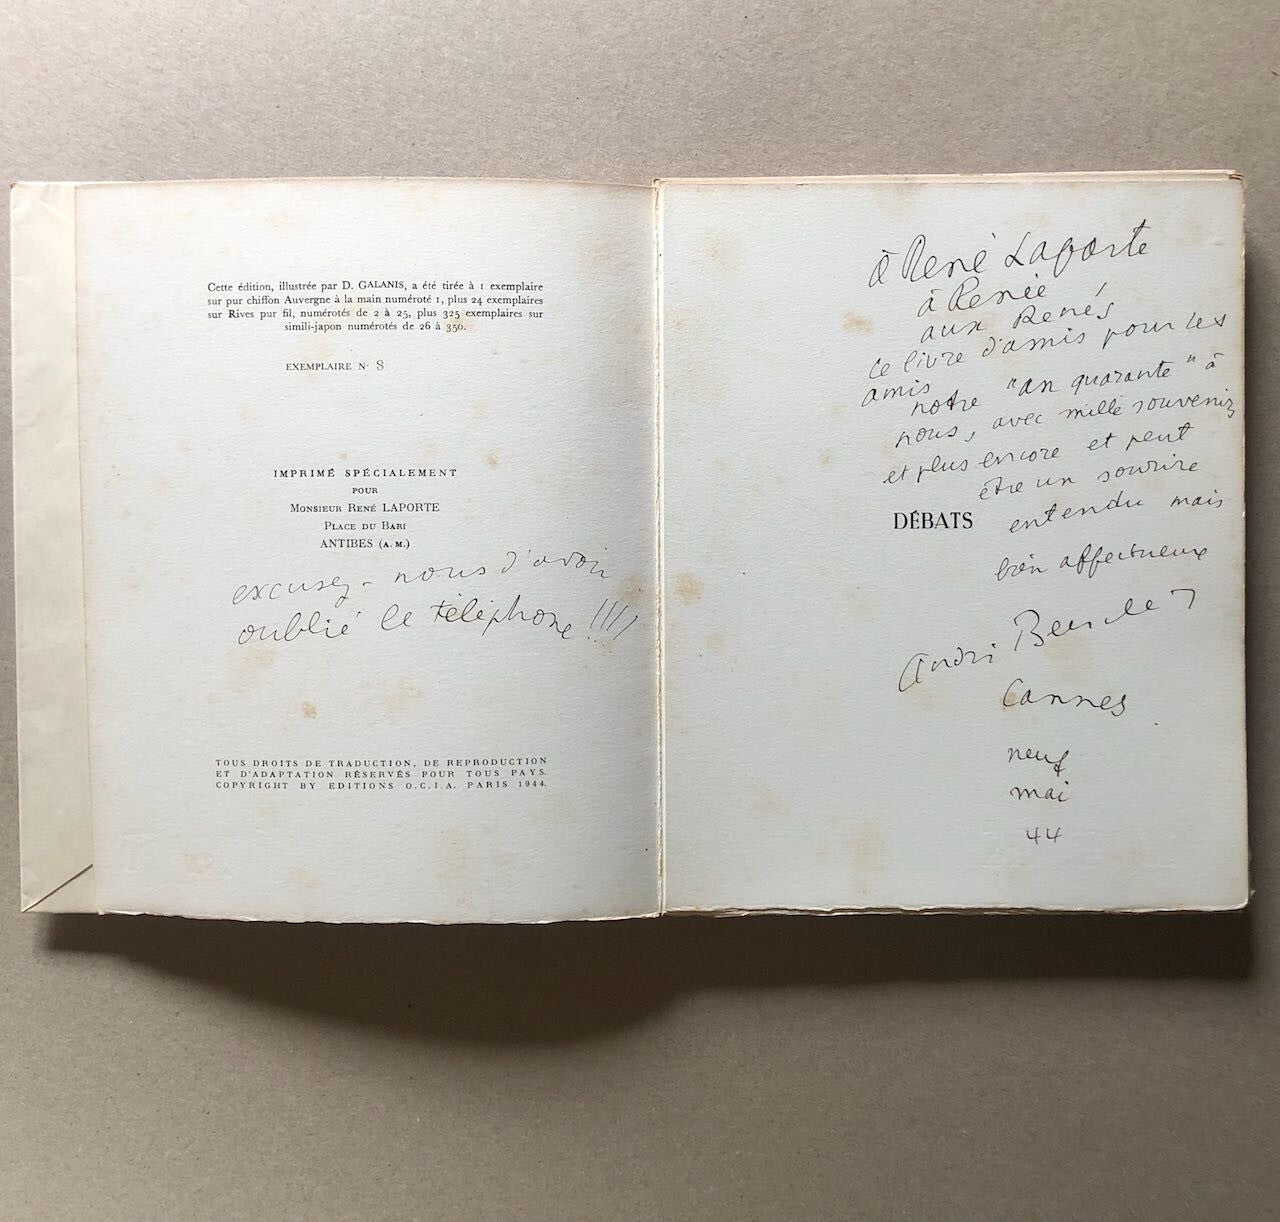 Cette édition, illustrée par D. GALANIS, a été tirée à 1 exemplaire
sur pur chiffon Auvergne à la main numéroté 1, plus 24 exemplaires
sur Rives pur fil, numérotés de 2 à 25, plus 325 exemplaires sur
simili-japon numérotés de 26 à 350.
EXEMPLAIRE N° 8
IMPRIMÉ SPÉCIALEMENT
POUR
MONSIEUR RENÉ LAPORTE
PLACE DU BARI
ANTIBES (A. M.)
excusez-nous d'avoir
oublié le téléphone !!!!
TOUS DROITS DE TRADUCTION, DE REPRODUCTION
ET D'ADAPTATION RÉSERVÉS POUR TOUS PAYS.
COPYRIGHT BY EDITIONS O.C.I.A. PARIS 1944.
à René Laporte
à Renée
aux Renés
ce livre d'amis pour les
amis
notre "an quarante" à
nous, avec mille souvenirs
et plus encore et peut
être un sourire
DÉBATS
entendu mais
bien affectueux
André
Cannes
neuf
mai
44